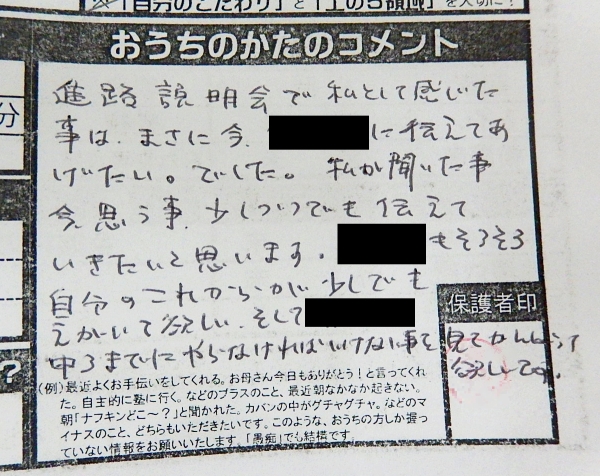 「自分のこだわり」と「上の5領域」を大切に!
おうちのかたのコメント
進路説明会で私として感じた
事は、まさに今、
に伝えてあ
げたい。でした。私が聞いた事
今思う事、少しづつでも伝えて
いきたいと思います。
もそろそろ
自分のこれからが少しでも
えがいて欲しい。そして
中3までにやらなければいけない事を見て
欲しいです。
保護者印
分
?
(例)最近よくお手伝いをしてくれる。お母さん今日もありがとう!と言ってくれ
た。自主的に塾に行く。などのプラスのこと、最近朝なかなか起きない。
朝「ナフキンどこ〜?」と聞かれた。カバンの中がグチャグチャ。などのマ
イナスのこと、どちらもいただきたいです。このような、おうちの方しか握っ
ていない情報をお願いいたします。「愚痴」でも結構です。